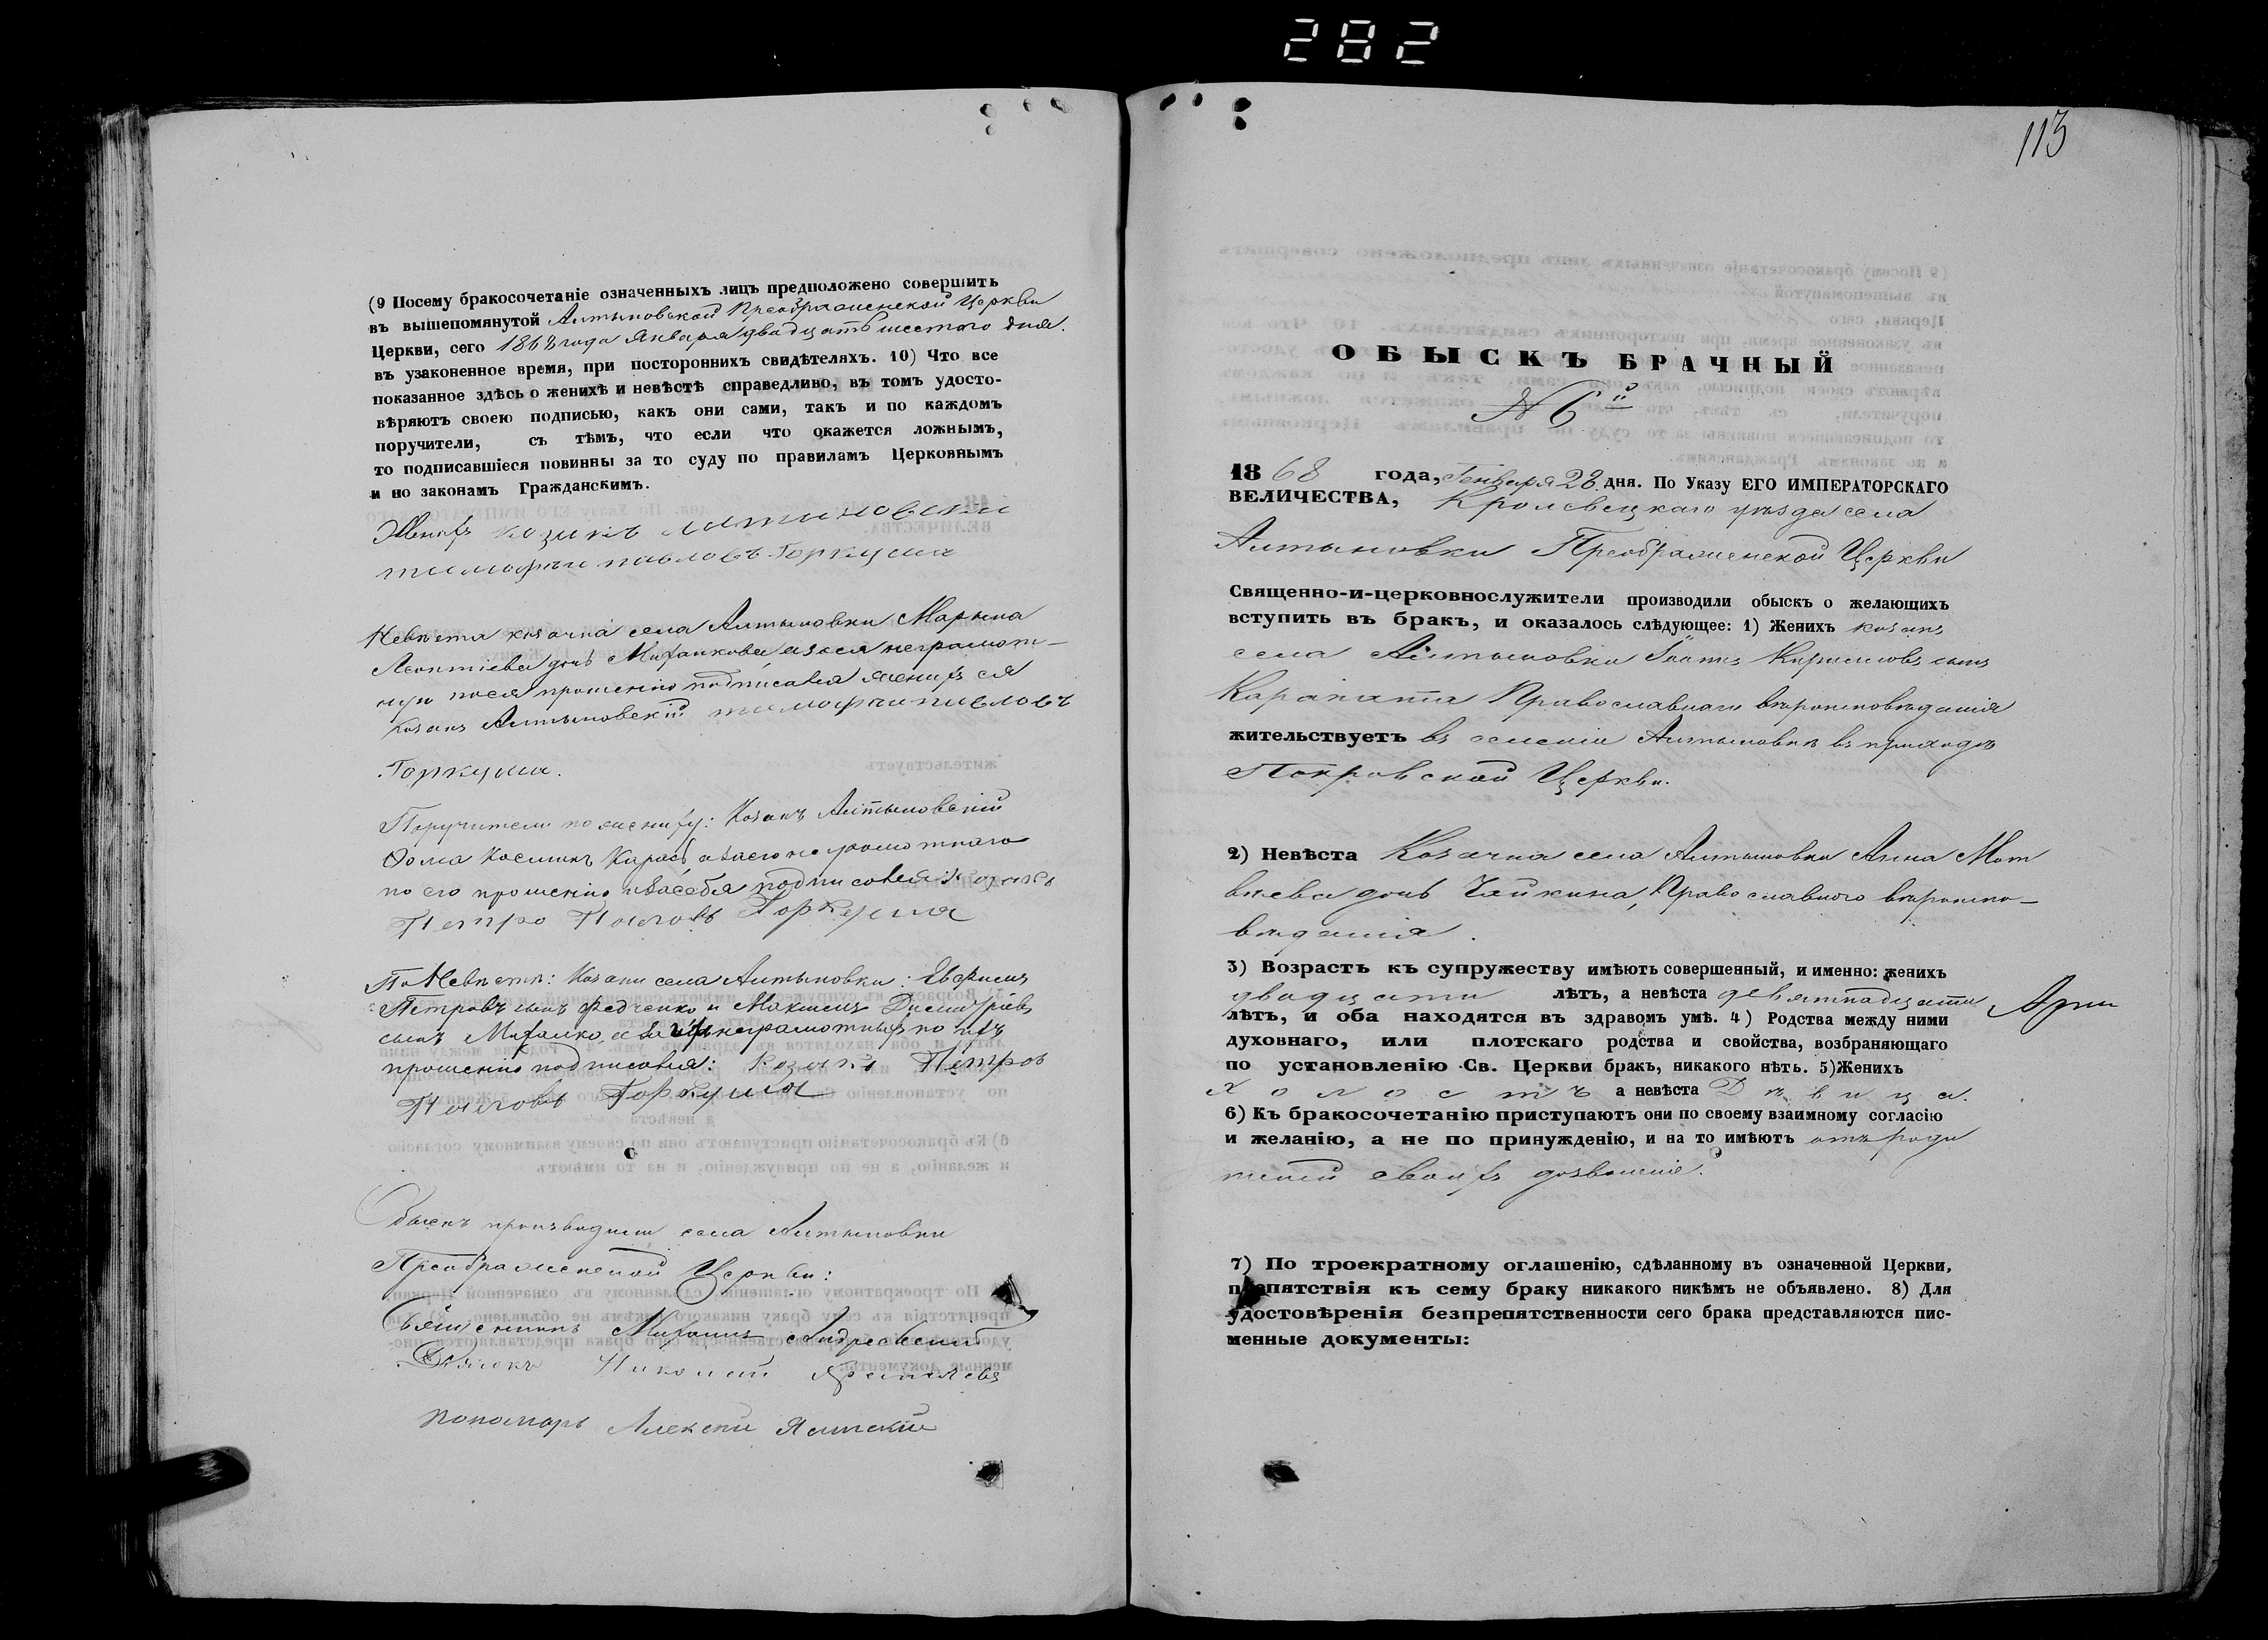 282
(9 Посему бракосочетаніе означенныхъ лицъ предположено совершить
въ вышепомянутой Алтыновской Преображенской Церкви
Церкви, сего 1868 года Января двадцать шестого дня.
въ узаконенное время, при постороннихъ свидѣтеляхъ. 10) Что все
показанное здѣсь о женихѣ и невѣстѣ справедливо, въ томъ удосто-
вѣряютъ своею подписью, какъ они сами, такъ и по каждомъ
поручители, съ тѣмъ, что если что окажется ложнымъ,
то подписавшіеся повинны за то суду по правиламъ Церковнымъ
и по законамъ Гражданскимъ.
Женихъ козакъ
павловъ Горкуша
Невѣста козачка села Алтыновки Марьина
Леонтіева дочь
прошенію подписался женихъ ея
Козакъ Алтыновскій
Горкуша.
Поручители по жениху: Козакъ Алтыновскій
Фома Косминъ
по его прошенію и за себя подписался Козакъ
Петро Павловъ Горкуша
По Невѣстѣ: Козаки села Алтыновки: Евфимъ
Петровъ сынъ Федченко и Максимъ Димитріевъ
сынъ Михалко, а за ихъ неграмотныхъ по ихъ
прошенію подписался: Козакъ Петро
Павловъ Горкуша
Обыскъ производили села Алтыновки
Преображенской Церкви:
Священникъ Михаилъ Андреевскій
Дьячекъ Николай
Пономарь Алексѣй
113
ОБЫСКЪ БРАЧНЫЙ
№ 6й
1868 года, Генваря 28 дня. По Указу ЕГО ИМПЕРАТОРСКАГО
ВЕЛИЧЕСТВА, Кролевецкаго уѣзда села
Алтыновки Преображенской Церкви
Священно-и-церковнослужители производили обыскъ о желающихъ
вступить въ бракъ, и оказалось слѣдующее: 1) Женихъ козакъ
села Алтыновки Іоаннъ Кириловъ сынъ
Карапата Православнаго вѣроисповѣданія
жительствуетъ въ селеніи Алтыновкѣ въ приходѣ
Покровской Церкви.
2) Невѣста Козачка села Алтыновки Анна Мат
вѣева дочь Чайкина, Православного вѣроиспо-
вѣданія.
3) Возрастъ къ супружеству имѣютъ совершенный, и именно: женихъ
двадцати лѣтъ, а невѣста девятнадцати
лѣтъ, и оба находятся въ здравомъ умѣ. 4) Родства между ними
духовнаго, или плотскаго родства и свойства, возбраняющаго
по установленію Св. Церкви бракъ, никакого нѣтъ. 5) Женихъ
холостъ а невѣста Дѣвица.
6) Къ бракосочетанію приступаютъ они по своему взаимному согласію
и желанію, а не по принужденію, и на то имѣютъ отъ роди
телей своихъ дозволеніе.
7) По троекратному оглашенію, сдѣланному въ означенной Церкви,
препятствія къ сему браку никакого никѣмъ не объявлено. 8) Для
удостовѣренія безпрепятственности сего брака представляются пис-
менные документы: